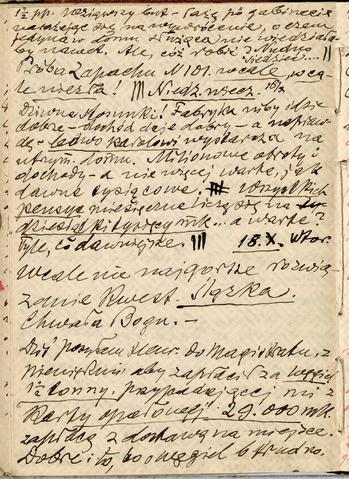 1/2 pp. wziąwszy but. łażę po gabinecie
narażając się na wywrócenie, o czem
żadna w domu o tej nie wiedziała
by nawet. Ale, cóż robić? Nudno
siedzieć... ||
Próba Zapachu N 101. wcale, wca-
le niezła! ||| Niedz. wiecz. 16/X
Dziwne stosunki! Fabryka niby idzie
dobrze - dochód daje dobry - a napraw-
dę - ledwo Karolowi wystarcza na
utrzym. domu. Miljonowe obroty i
dochody - a nie więcej warte, jak
dawne tysiącowe. wszystkich
pensye miesięczne liczą się na
dziesiątki tysięcy mk... a warte?
Tyle, co dawniejsze. ||| 18.X. Wtor.
Wcale nie najgorsze rozwią-
zanie kwest. Śląska.
Chwała Bogu. -
Dziś posyłam Henr. do Magistratu, z
pieniędzmi aby zapłacić za węgiel
1 1/2 tonny, przypadającej mi z
karty opałowej 29.000 mk.
zapłacą z dostawą na miejsce.
Dobre i to, bo o węgiel b. trudno.